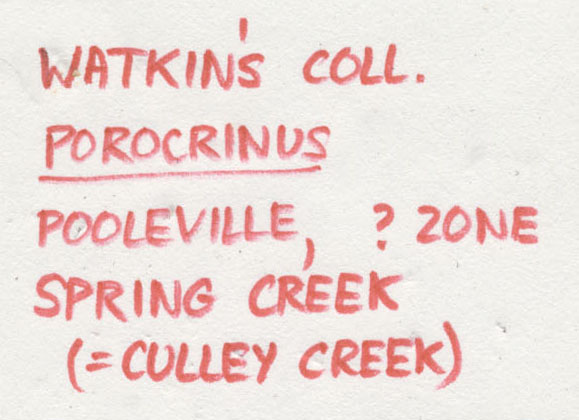 WATKIN'S COLL.
POROCRINUS
POOLEVILLE, ? ZONE
SPRING CREEK
(=CULLEY CREEK)